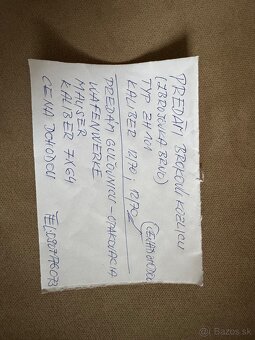 PREDÁM BROKOVÚ KOZLICU
(ZBROJOVKA BRNO)
TYP ZH 101
KALIBER 12/70, 12/70
CENA DOHODOU
PREDÁM GUĽOVNICU - OPAKOVAČKA
WAFENWERKE
MAUSER
KALIBER 7X64
CENA DOHODOU
sk.Bazar.sk